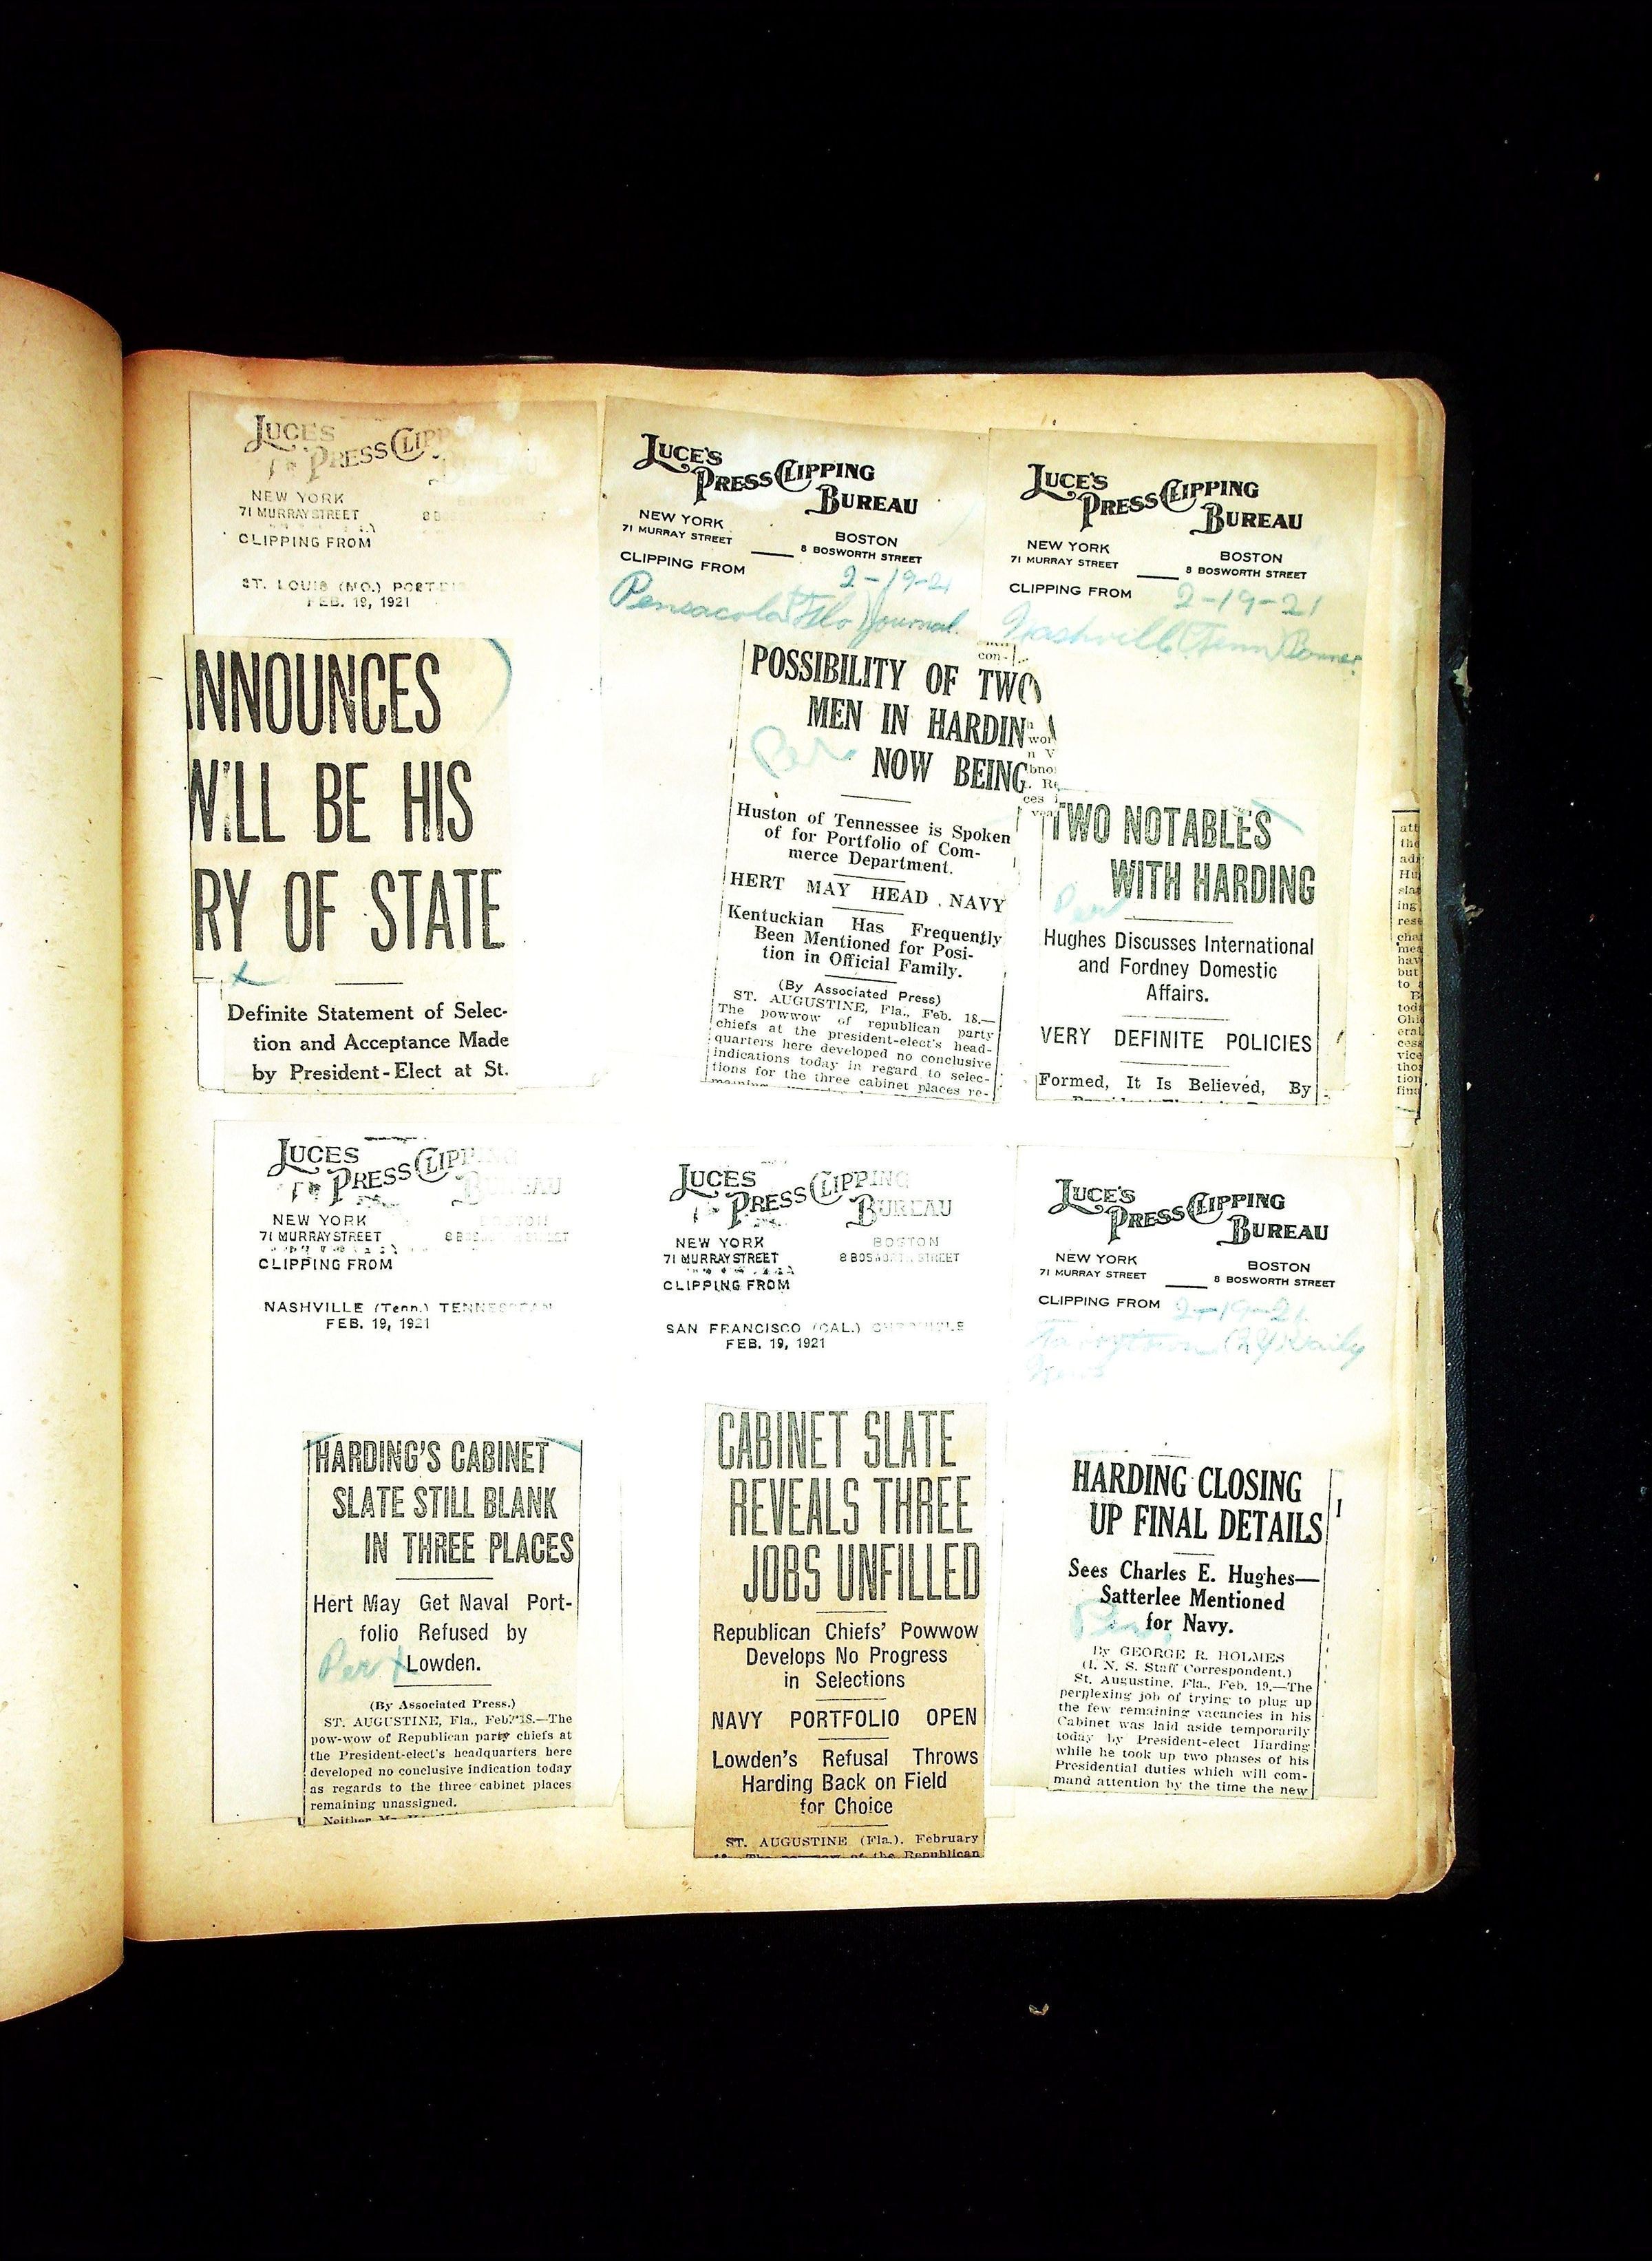 LUCE'S
PRESS CLIPP
NEW YORK
71 MURRAY STREET
CLIPPING FROM
ST. LOUIS (MO.) POST-DIS
FEB. 19, 1921
ANNOUNCES
WILL BE HIS
RY OF STATE
Definite Statement of Selec-
tion and Acceptance Made
by President-Elect at St.
LUCE'S
PRESS CLIPPING
BUREAU
NEW YORK
71 MURRAY STREET
BOSTON
8 BOSWORTH STREET
CLIPPING FROM
2-19-21
Pensacola (Flo) Journal.
con-
POSSIBILITY OF TWO
MEN IN HARDIN
NOW BEING
Per
Huston of Tennessee is Spoken
of for Portfolio of Com-
merce Department.
HERT MAY HEAD NAVY
Kentuckian Has Frequently
Been Mentioned for Posi-
tion in Official Family.
(By Associated Press)
ST. AUGUSTINE, Fla., Feb. 18.—
The powwow of republican party
chiefs at the president-elect's head-
quarters here developed no conclusive
indications today in regard to selec-
tions for the three cabinet places re-
LUCE'S
PRESS CLIPPING
BUREAU
NEW YORK
71 MURRAY STREET
BOSTON
8 BOSWORTH STREET
CLIPPING FROM
2-19-21
Nashville (Tenn) Banner
TWO NOTABLES
WITH HARDING
Per
Hughes Discusses International
and Fordney Domestic
Affairs.
VERY DEFINITE POLICIES
Formed, It Is Believed, By
LUCE'S
PRESS CLIPPING
BUREAU
NEW YORK
71 MURRAY STREET
BOSTON
CLIPPING FROM
NASHVILLE (Tenn.) TENNESSEAN
FEB. 19, 1921
HARDING'S CABINET
SLATE STILL BLANK
IN THREE PLACES
Hert May Get Naval Port-
folio Refused by
Lowden.
Per
(By Associated Press.)
ST. AUGUSTINE, Fla., Feb. 18.—The
pow-wow of Republican party chiefs at
the President-elect's headquarters here
developed no conclusive indication today
as regards to the three cabinet places
remaining unassigned.
Neither
LUCE'S
PRESS CLIPPING
BUREAU
NEW YORK
71 MURRAY STREET
BOSTON
8 BOSWORTH STREET
CLIPPING FROM
SAN FRANCISCO (CAL.) CHRONICLE
FEB. 19, 1921
CABINET SLATE
REVEALS THREE
JOBS UNFILLED
Republican Chiefs' Powwow
Develops No Progress
in Selections
NAVY PORTFOLIO OPEN
Lowden's Refusal Throws
Harding Back on Field
for Choice
ST. AUGUSTINE (Fla.), February
of the Republican
LUCE'S
PRESS CLIPPING
BUREAU
NEW YORK
71 MURRAY STREET
BOSTON
8 BOSWORTH STREET
CLIPPING FROM
2-19-21
Tarrytown (N.Y.) Daily
News
HARDING CLOSING
UP FINAL DETAILS
Sees Charles E. Hughes—
Satterlee Mentioned
for Navy.
Per
By GEORGE R. HOLMES
(I. N. S. Staff Correspondent.)
St. Augustine, Fla., Feb. 19.—The
perplexing job of trying to plug up
the few remaining vacancies in his
Cabinet was laid aside temporarily
today by President-elect Harding
while he took up two phases of his
Presidential duties which will com-
mand attention by the time the new